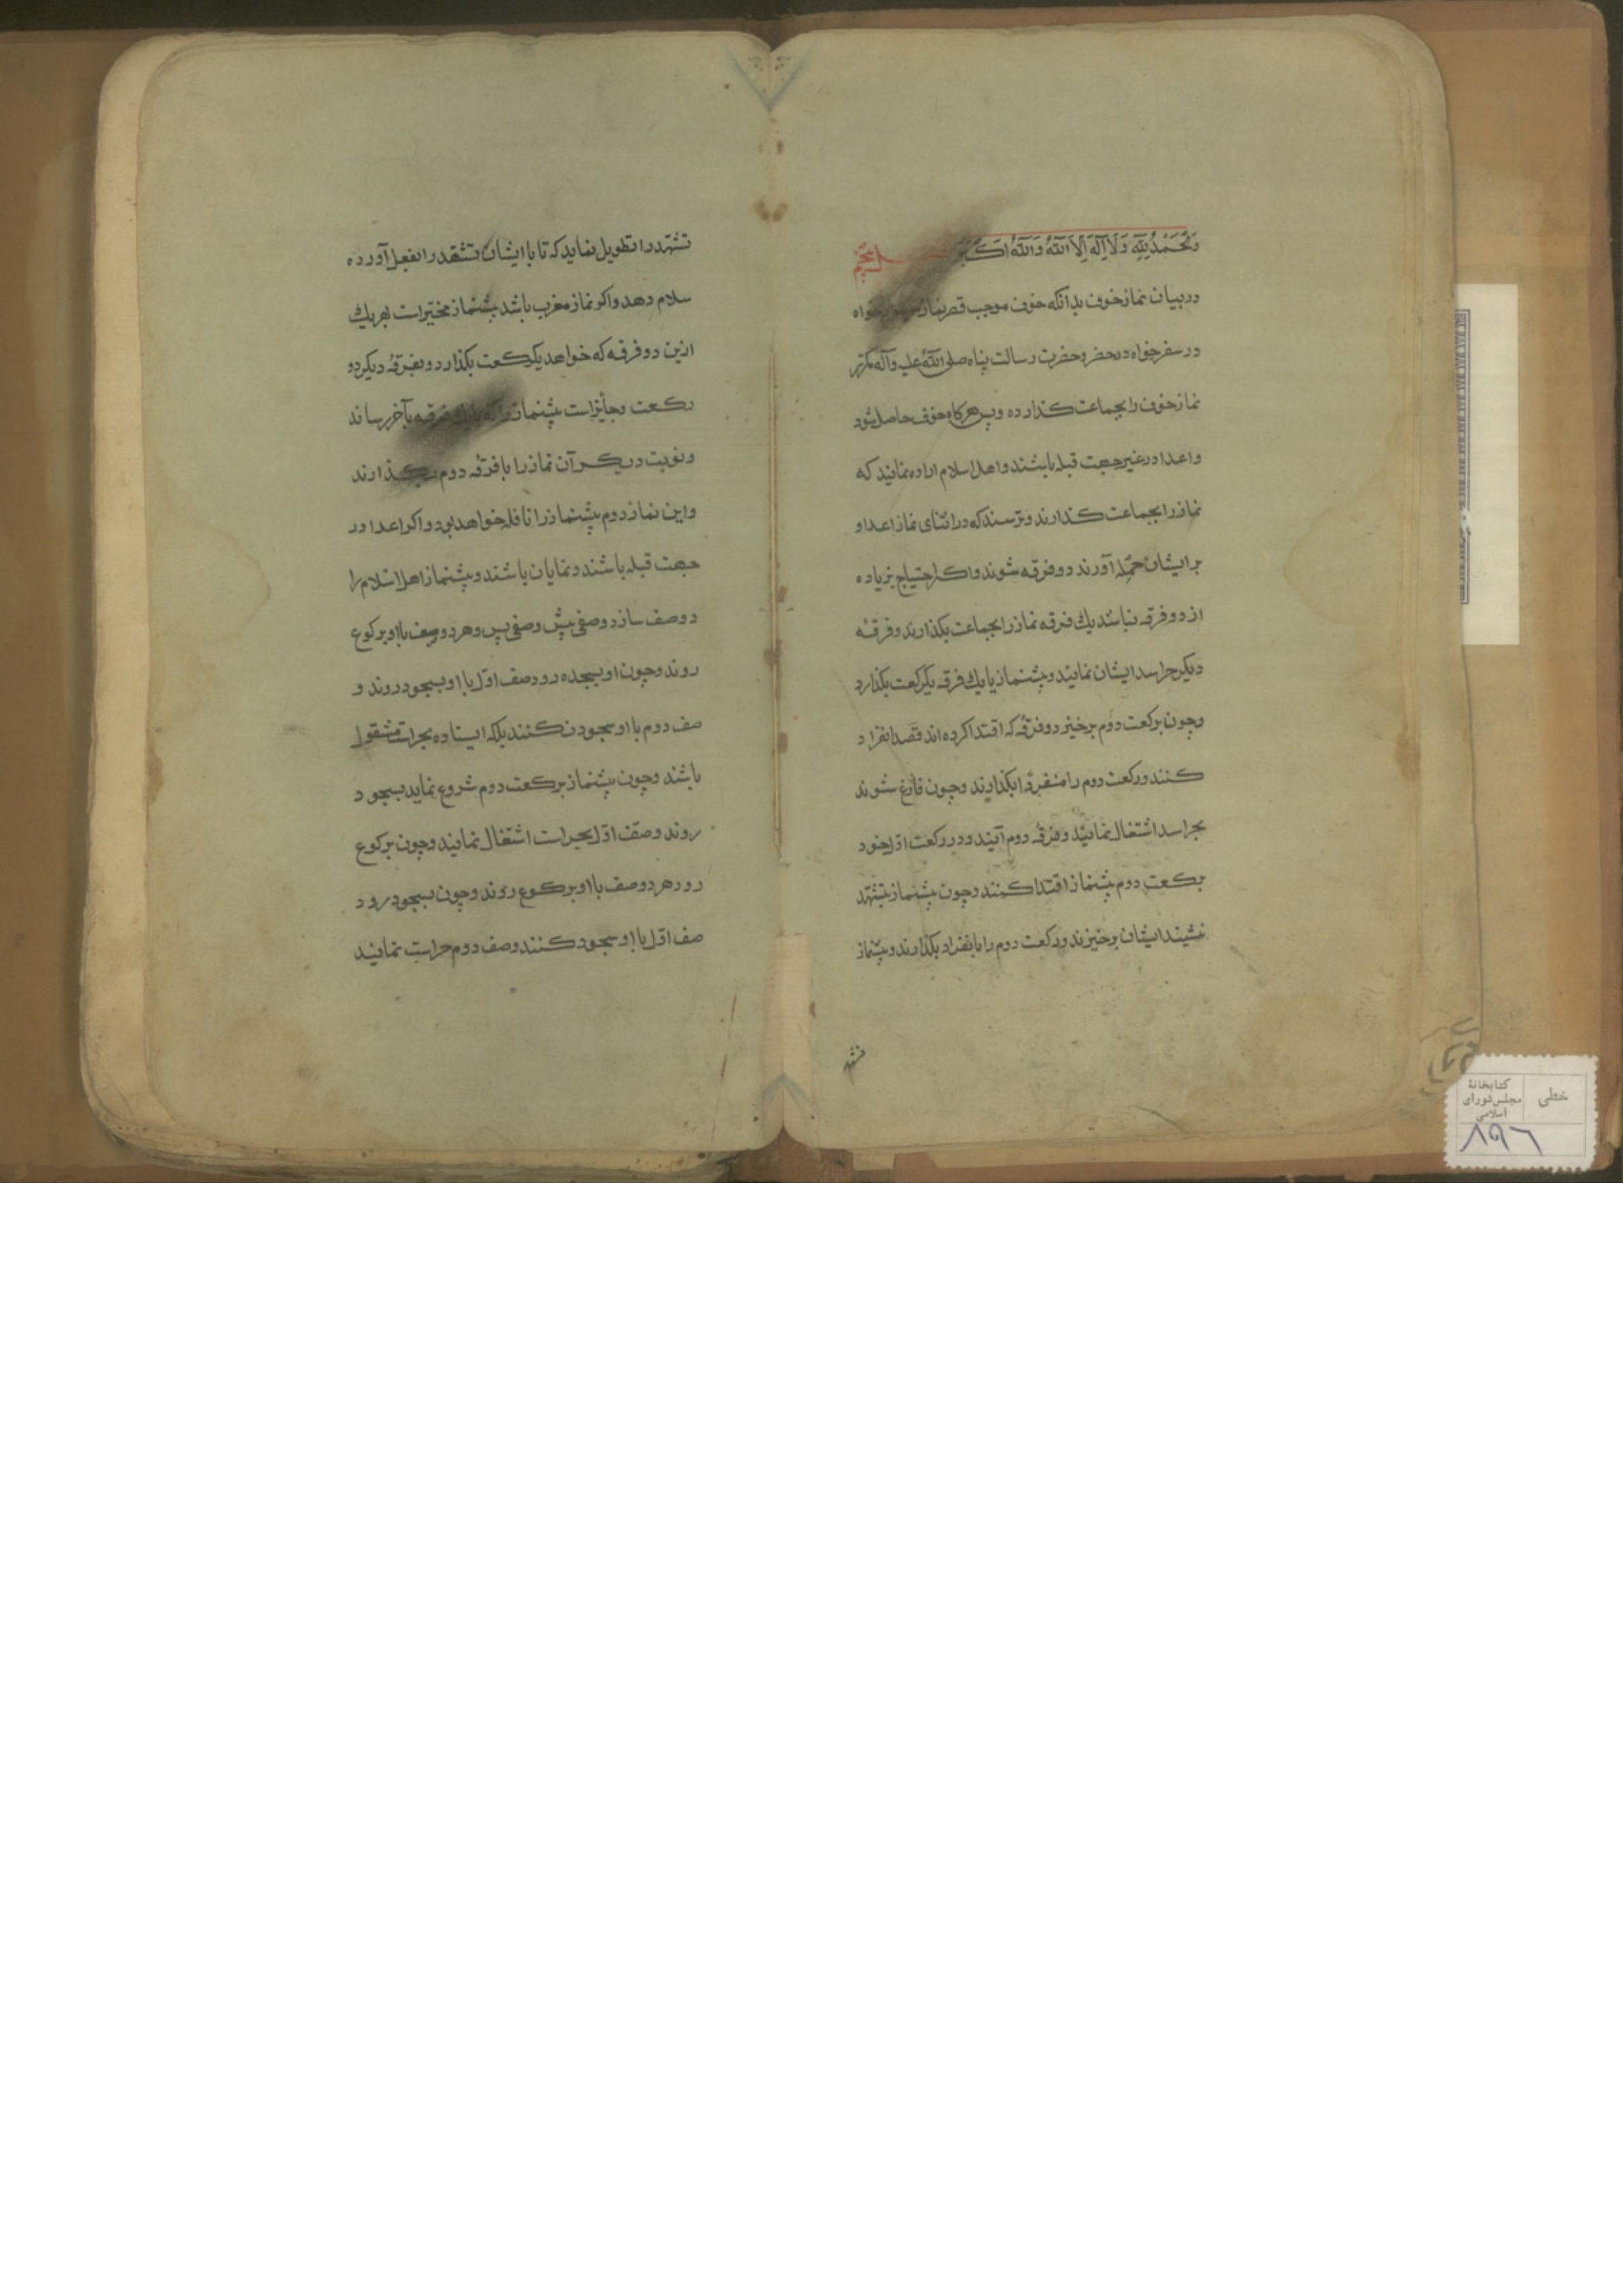 وَتَحْمَدُ لِلّهِ وَلَا اِلَهَ اِلَّا اللّهُ وَاللّهُ اَكْبَرُ
در بیان نماز خوف بدانکه خوف موجب قصر نماز خواه
در سفر خواه در حضر و حضرت رسالت پناه صلی اللّه علیه وآله مکرر
نماز خوف را بجماعت کذارده و پس هرکاه خوف حاصل شود
واعدا در غیر جهت قبله باشند واهل اسلام اراده نمایند که
نماز را بجماعت کذارند و ترسند که در اثنای نماز اعدا و
بر ایشان حمله آورند دو فرقه شوند واکر احتیاج بزیاده
از دو فرقه نباشد یك فرقه نماز را بجماعت بکذارند و فرقهٔ
دیکر حراسد ایشان نمایند و پیشنماز با یك فرقه یکرکعت بکذارد
وچون برکعت دوم برخیزد و فرقهٔ که اقتدا کرده اند قصد انفراد
کنند و رکعت دوم را منفردًا بکذارند وچون فارغ شوند
بحراسد اشتغال نمایند و فرقهٔ دوم آیند ودر رکعت اول خود
برکعت دوم پیشنماز اقتدا کنند وچون پیشنماز بتشهد
نشیند ایشان برخیزند و رکعت دوم را بانفراد بکذارند و پیشنماز
تشهد
تشهد را تطویل نماید که تا با ایشان تشهد را بفعل آورده
سلام دهد واکر نماز مغرب باشد پیشنماز مخیر است بهر یك
ازین دو فرقه که خواهد یکرکعت بکذارد و بفرقهٔ دیکر دو
رکعت وجایز است پیشنماز را که با یك فرقه بآخر رساند
ونوبت دیکر آن نماز را با فرقهٔ دوم بکذارند
واین نماز دوم پیشنماز را نافله خواهد بود واکر اعدا در
جهت قبله باشند ونمایان باشند و پیشنماز اهل اسلام را
دو صف سازد و صفی پیش و صفی پس وهر دو صف با او برکوع
روند وچون او بسجده رود صف اول با او بسجود روند و
صف دوم با او سجود نکنند بلکه ایستاده بحراست مشغول
باشند وچون پیشنماز برکعت دوم شروع نماید بسجود
روند وصف اول بحراست اشتغال نمایند وچون برکوع
رود هر دو صف با او برکوع روند وچون بسجود رود
صف اول با او سجود کنند وصف دوم حراست نمایند
خطی
کتابخانهٔ
مجلس شورای
اسلامی
۸۹۶